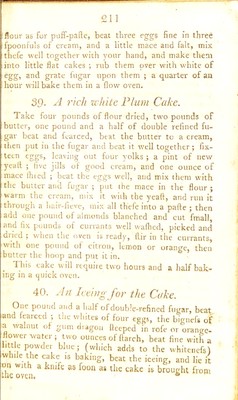 211
flour as for puff-paste, beat three eggs fine in three
spoonfuls of cream, and a little mace and salt, mix
these well together with your hand, and make them
into little flat cakes ; rub them over with white of
egg, and grate sugar upon them ; a quarter of an
hour will bake them in a slow oven.
39. A rich white Plum Cake.
Take four pounds of flour dried, two pounds of
butter, one pound and a half of double refined su-
gar beat and searced, beat the butter to a cream,
then put in the sugar and beat it well together ; six-
teen eggs, leaving out four yolks ; a pint of new
yeast ; five jills of good cream, and one ounce of
mace shred ; beat the eggs well, and mix them with
the butter and sugar ; put the mace in the flour ;
warm the cream, mix it with the yeast, and run it
through a hair-sieve, mix all these into a paste ; then
add one pound of almonds blanched and cut small,
and six pounds of currants well washed, picked and
dried ; when the oven is ready, stir in the currants,
with one pound of citron, lemon or orange, then
butter the hoop and put it in.
This cake will require two hours and a half bak-
ing in a quick oven.
40. An Iceing for the Cake.
One pound and a half of double-refined sugar, beat
and searced ; the whites of four eggs, the bigness of
a walnut of gum dragon steeped in rose or orange-
flower water ; two ounces of starch, beat fine with a
little powder blue ; (which adds to the whiteness)
while the cake is baking, beat the iceing, and lie it
on with a knife as soon as the cake is brought from
the oven.